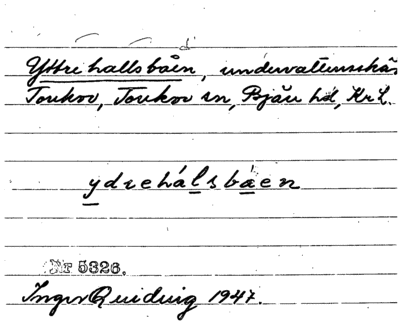 Yttre hallsbåen, undervattensskär
Torkov, Torkov sn, Bjäre hd, Kr L.
ydrehálsbáen
Nr 5326.
Inger Quiding 1947.